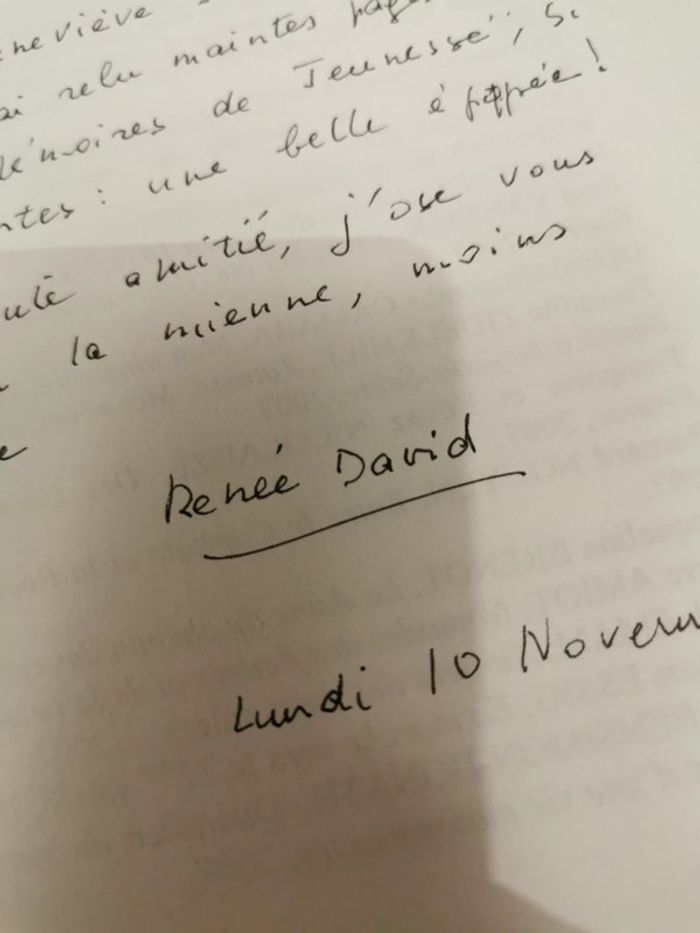 eneviève
ai relu maintes pag
émoires de Jeunesse", si
ntes : une belle épopée!
uté amitié, j'ose vous
la mienne, moins
e
Renée David
Lundi 10 Novem